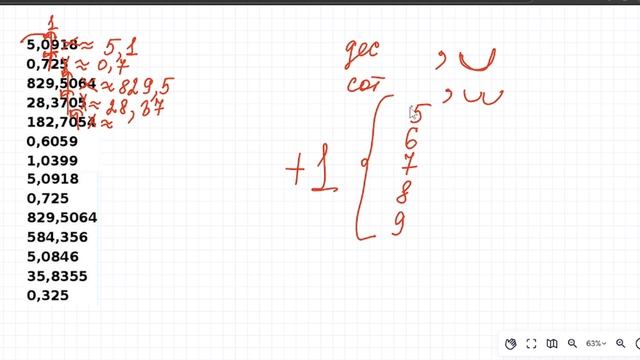 1
5,0918 ≈ 5,1
0,725 ≈ 0,7
829,5064 ≈ 829,5
28,3705 ≈ 28,37
182,7054 ≈
0,6059
1,0399
5,0918
0,725
829,5064
584,356
5,0846
35,8355
0,325
дес ,
сот ,
+1
5
6
7
8
9
63%